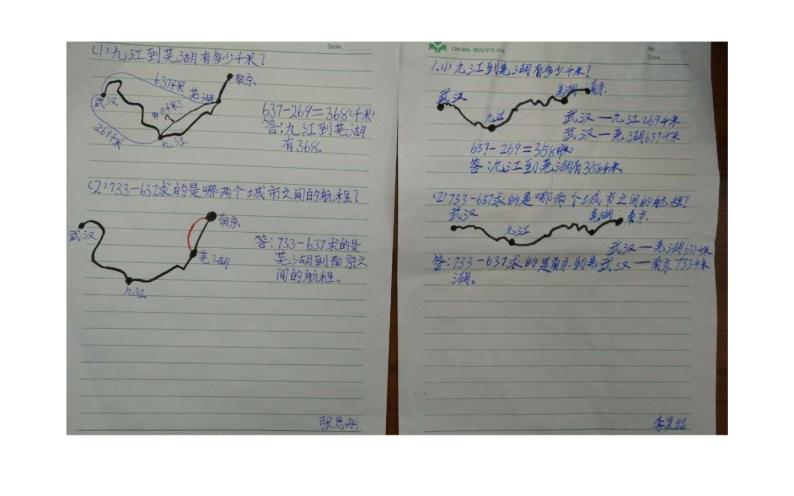 Date
(1)九江到芜湖有多少千米?
637千米
南京
芜湖
武汉
269千米
九江
637-269=368(千米)
答:九江到芜湖
有368.
(2)733-637求的是哪两个城市之间的航程?
南京
武汉
芜湖
九江
答:733-637求的是
芜湖到南京之
间的航程。
张思彤
No.
Date
1.(1)九江到芜湖有多少千米?
武汉
芜湖
南京
九江
武汉—九江269千米
武汉—芜湖637千米
637-269=358千米
答:九江到芜湖有358千米
(2)733-637求的是哪两个城市之间的航程?
武汉
芜湖
南京
九江
武汉—芜湖637千米
武汉—南京733千米
答:733-637求的是南京到芜
湖。